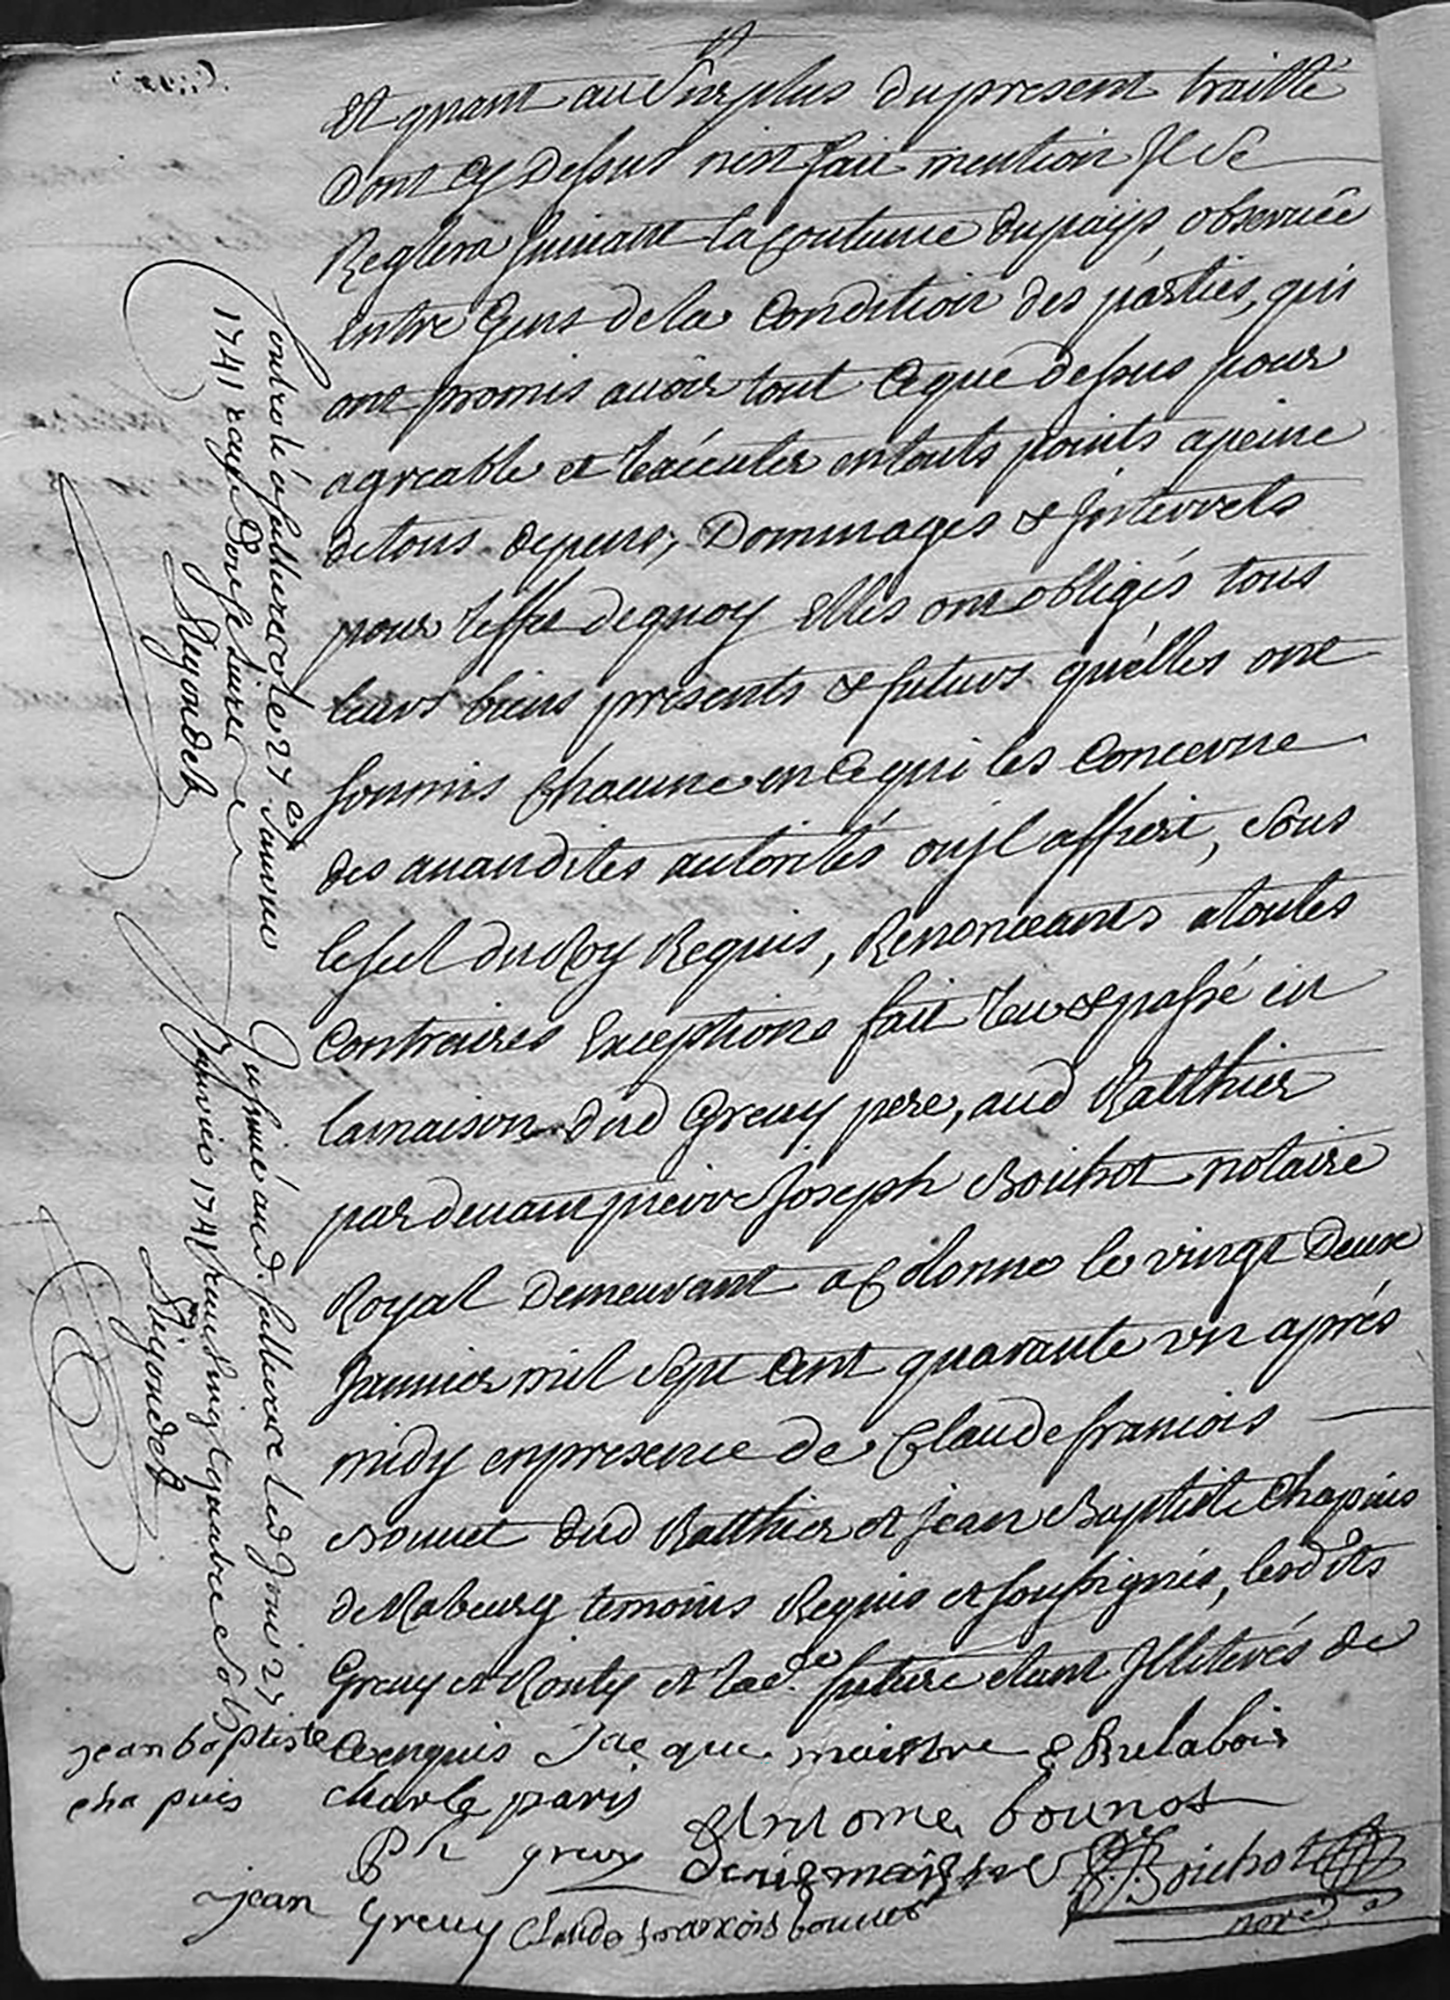 Et quant au Surplus du present traitté
dont cy dessus n'est fait mention Il se
Reglera suivant la Coutume du païs observée
entre Gens de la Condition des parties, qui
ont promis avoir tout ce que dessus pour
agreable et l'exécuter en touts points a peine
de tous depens, Dommages & Interrets
pour l'effet de quoy elles ont obligés tous
leurs biens presents & futurs qu'elles ont
soumis Chacune en ce qui les Concerne
des avandites autorités ou jl affiert, sous
le seel du Roy Requis, Renonceants a toutes
Contraires Exceptions fait leu & passé en
la maison dud Greuy pere, aud Ratthier
par devant pierre Joseph Bouhot notaire
Royal Demeurant a Colonne le vingt deux
Janvier mil sept cent quarante un après
midy en presence de Claude francois
Bonnet dud Ratthier et jean Baptiste Chapuis
de Rabeury temoins Requis et soussignés, lesdits
Greuy et Routy et lad.e future etant Illiterés de
ce enquis Jacque maistre C Brelabois
jean baptiste
chapuis
charle paris
Antoine bounot
Ph greuy
denis maistre
P J Bouhot
nore
jean Greuy
Claude francois bonnet
Controlé a sellieres le 24e Janvier
1741 reçu Douse livres
Segondet
Insinué aud. sellieres led Jour 24
Janvier 1741 reçu vingt quatre sols
Segondet